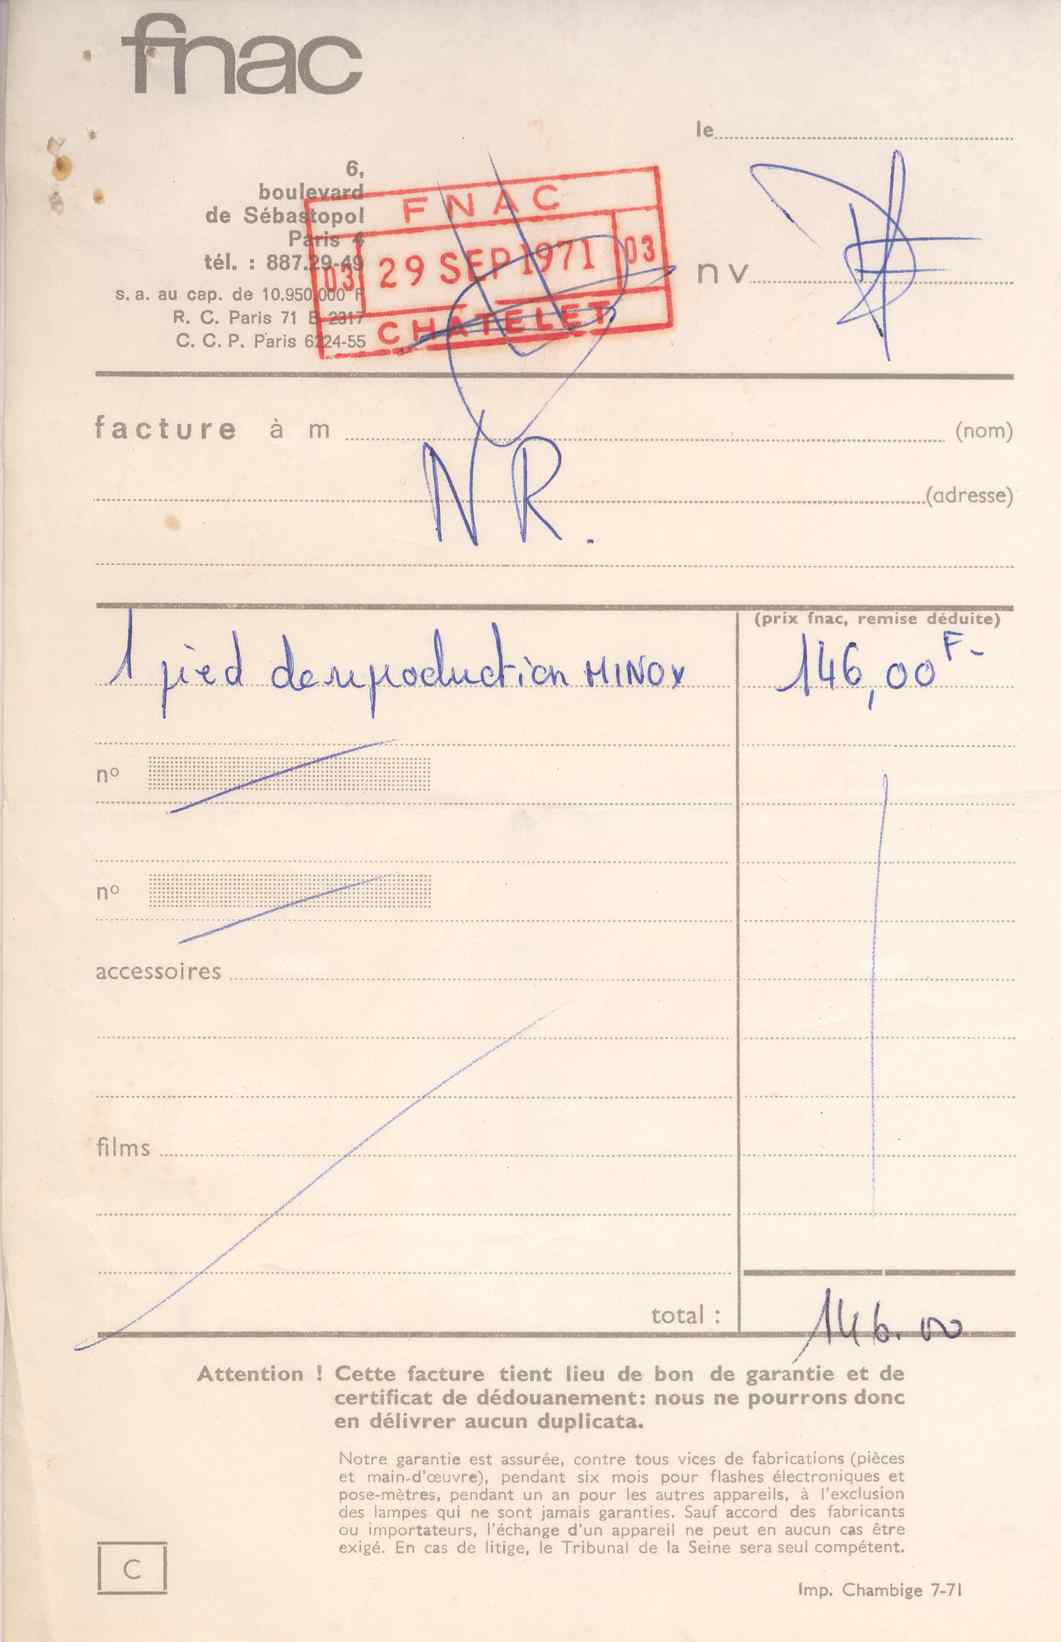 fnac
le
6,
boulevard
de Sébastopol
Paris 4
tél. : 887.29-49
s. a. au cap. de 10.950.000 F
R. C. Paris 71 B 2317
C. C. P. Paris 6224-55
FNAC
03 29 SEP 1971 03
CHATELET
nv
facture à m (nom)
NR.
(adresse)
(prix fnac, remise déduite)
1 pied de reproduction MINOX 146,00 F-
nº
nº
accessoires
films
total : 146.00
Attention ! Cette facture tient lieu de bon de garantie et de
certificat de dédouanement: nous ne pourrons donc
en délivrer aucun duplicata.
Notre garantie est assurée, contre tous vices de fabrications (pièces
et main-d'œuvre), pendant six mois pour flashes électroniques et
pose-mètres, pendant un an pour les autres appareils, à l'exclusion
des lampes qui ne sont jamais garanties. Sauf accord des fabricants
ou importateurs, l'échange d'un appareil ne peut en aucun cas être
exigé. En cas de litige, le Tribunal de la Seine sera seul compétent.
C
Imp. Chambige 7-71